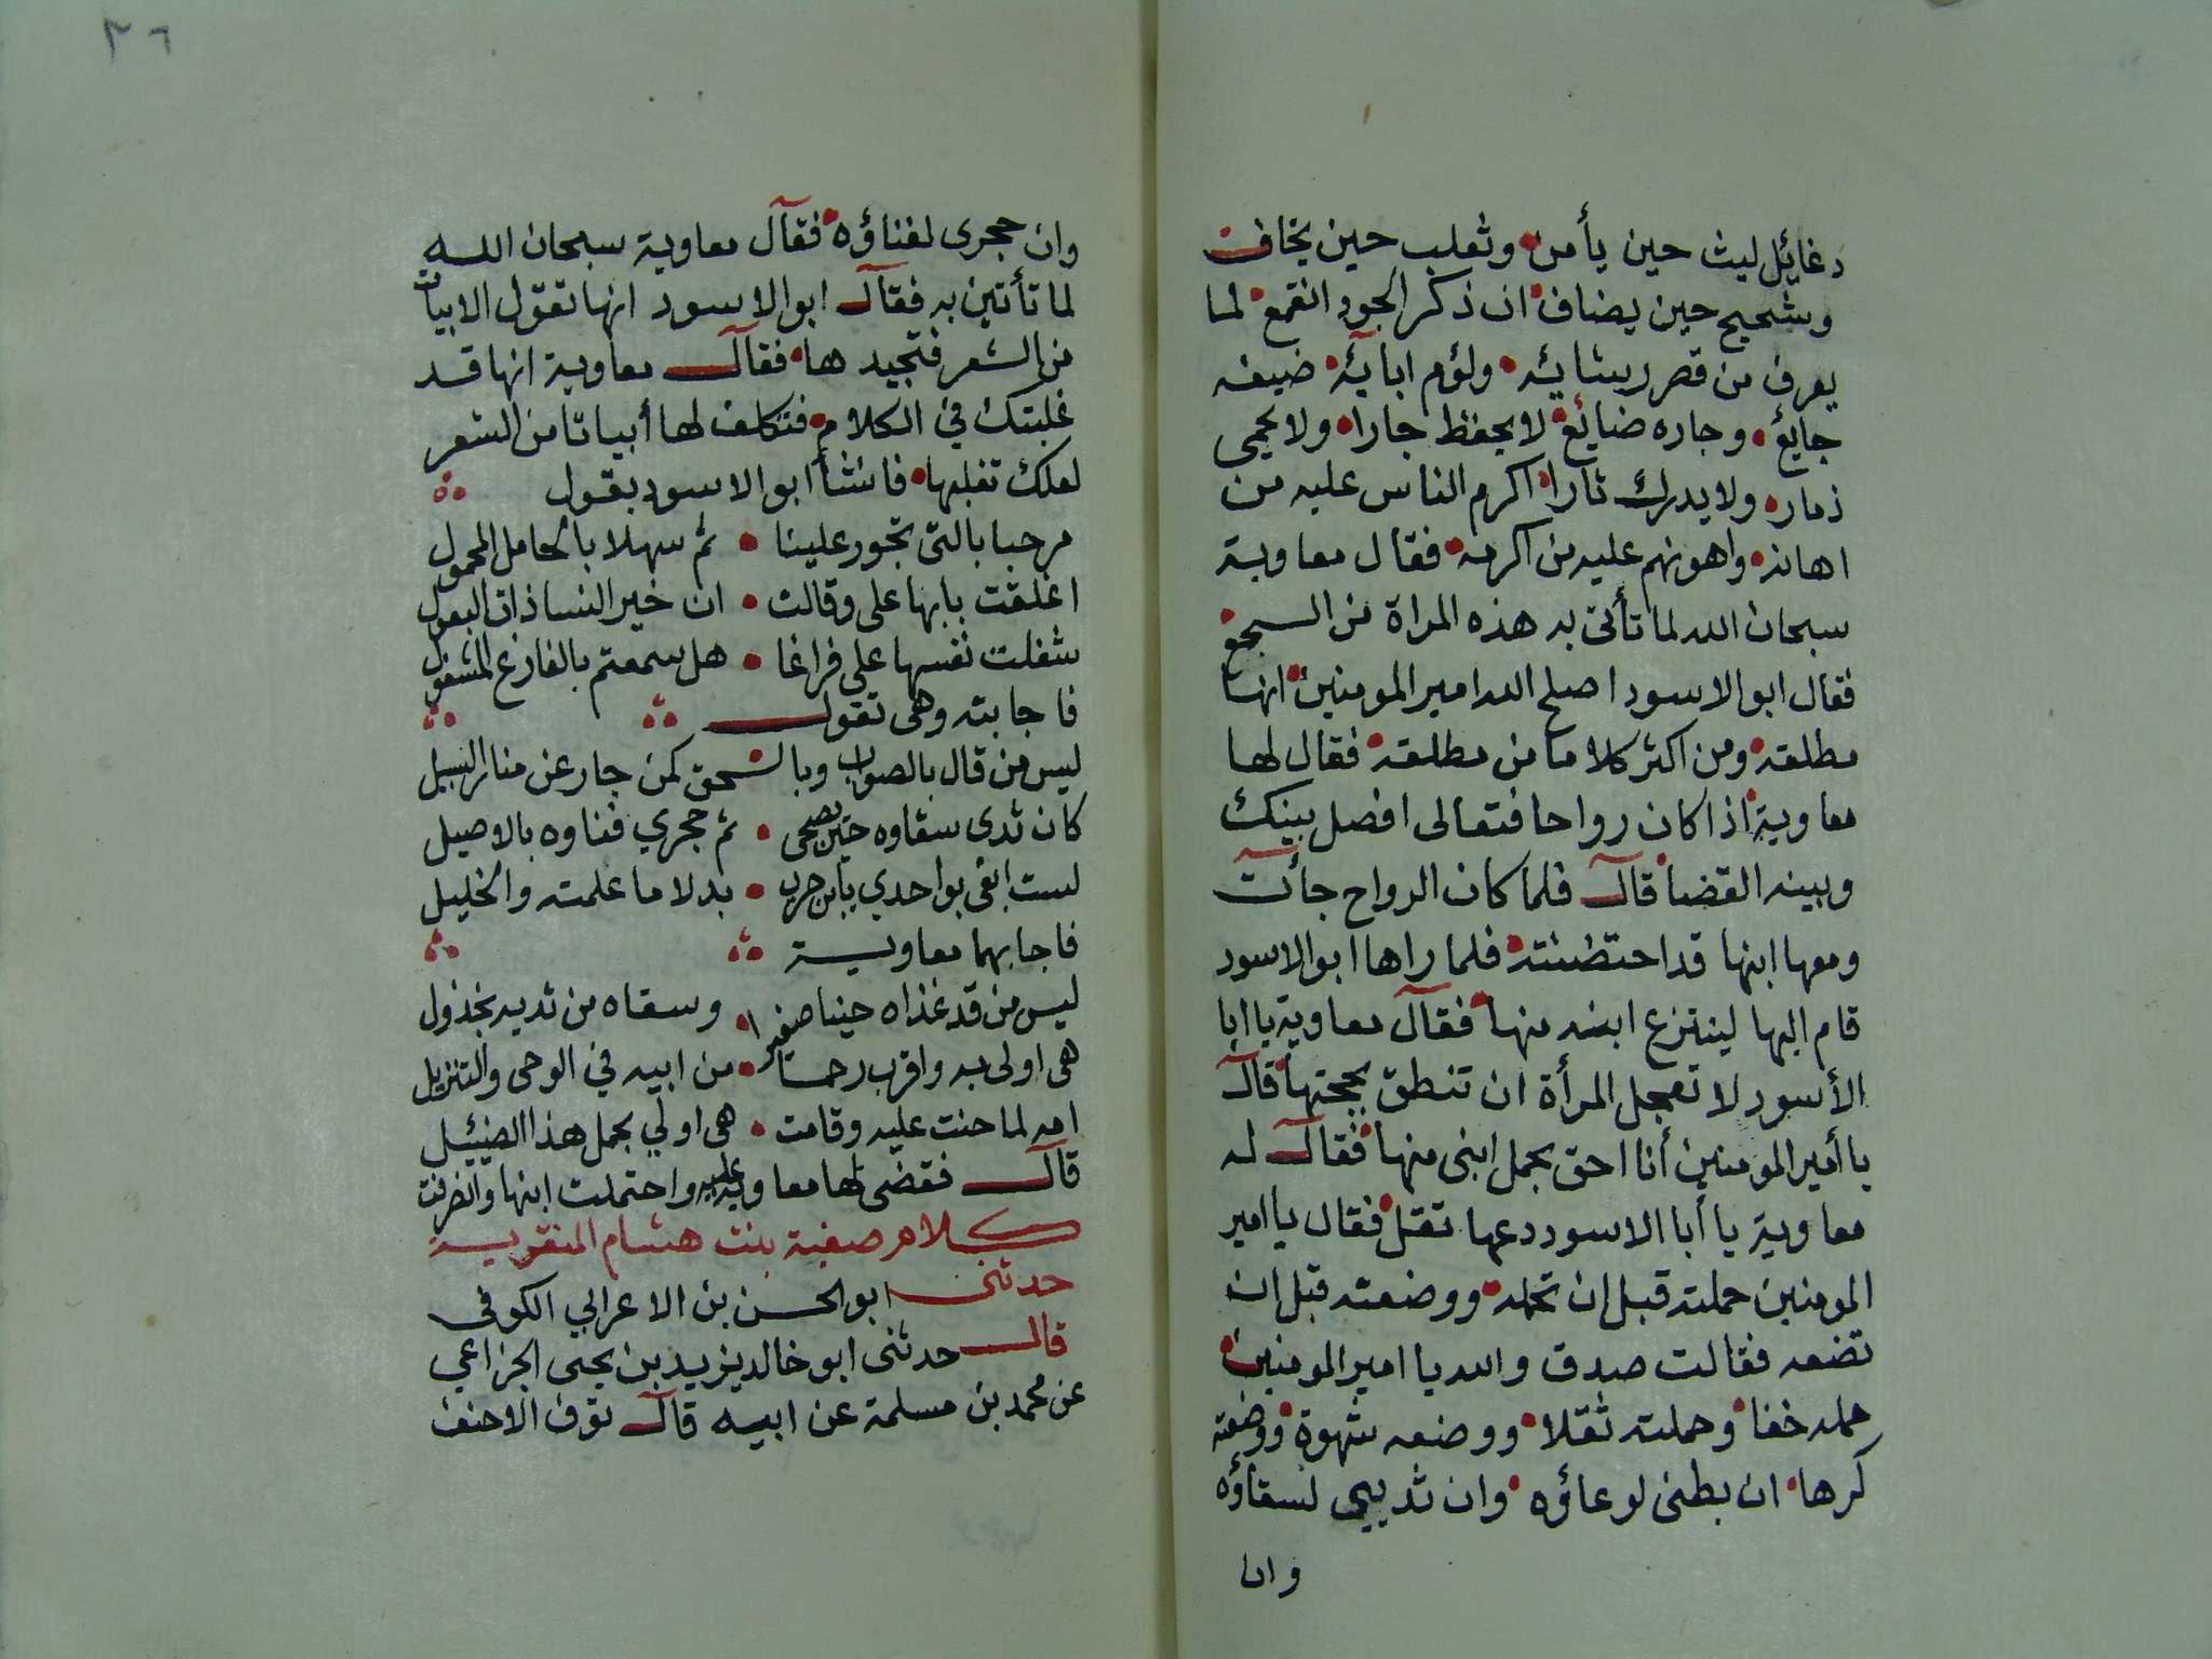 دغائل ليث حين يأمن وثعلب حين يخاف
وشحيح حين يضاف ان ذكر الجود انقمع لما
يعرف من قصر رشائه ولؤم ابائه ضيفه
جائع وجاره ضائع لا يحفظ جارا ولا يحمي
ذمار ولا يدرك ثارا اكرم الناس عليه من
اهانه واهونهم عليه من اكرمه فقال معاوية
سبحان الله لما تأتى به هذه المراة من السجع
فقال ابو الاسود اصلح الله امير المومنين انها
مطلقه ومن اكثر كلاما من مطلقه فقال لها
معاوية اذا كان رواحا فتعالى افصل بينك
وبينه القضا قال فلما كان الرواح جأت
ومعها ابنها قد احتظنته فلما راها ابو الاسود
قام اليها لينتزع ابنه منها فقال معاوية يا ابا
الأسود لا تعجل المرأة ان تنطق بحجتها قال
يا أمير المومنين أنا احق بحمل ابنى منها فقال له
معاوية يا أبا الاسود دعها تقل فقال يا امير
المومنين حملته قبل ان تحمله ووضعته قبل ان
تضعه فقالت صدق والله يا امير المومنين
حمله خفا وحملته ثقلا ووضعه شهوة ووضعته
كرها ان بطنى لوعاؤه وان ثدييى لسقاؤه
وان
٢٦
وان حجرى لفناؤه فقال معاوية سبحان الله
لما تأتين به فقال ابو الاسود انها تقول الابيات
من الشعر فتجيدها فقال معاوية انها قد
غلبتك في الكلام فتكلف لها أبياتا من الشعر
لعلك تغلبها فانشأ ابو الاسود يقول
مرحبا بالتى تجور علينا ثم سهلا بالحامل المحمول
اغلقت بابها على وقالت ان خير النسا ذات البعول
شغلت نفسها على فراغا هل سمعتم بالفارغ المشغول
فاجابته وهى تقول
ليس من قال بالصواب وبالحق كمن جار عن منار السبيل
كان ثدى سقاوه حين يضحى ثم حجري فناوه بالاصيل
لست ابغى بواحدي يابن حرب بدلا ما علمته والخليل
فاجابهما معاوية
ليس من قد غذاه حينا صغيرا وسقاه من ثديه بخذول
هى اولى به واقرب رحما من ابيه في الوحى والتنزيل
امه لما حنت عليه وقامت هى اولي بحمل هذا الضئيل
قال فقضى لها معاوية عليه واحتملت ابنها وانصرفت
كلام صفية بنت هشام المنقرية
حدثنى ابو الحسن بن الاعرابي الكوفى
قال حدثنى ابو خالد يزيد بن يحيى الخزاعي
عن محمد بن مسلمة عن ابيه قال توفى الاحنف